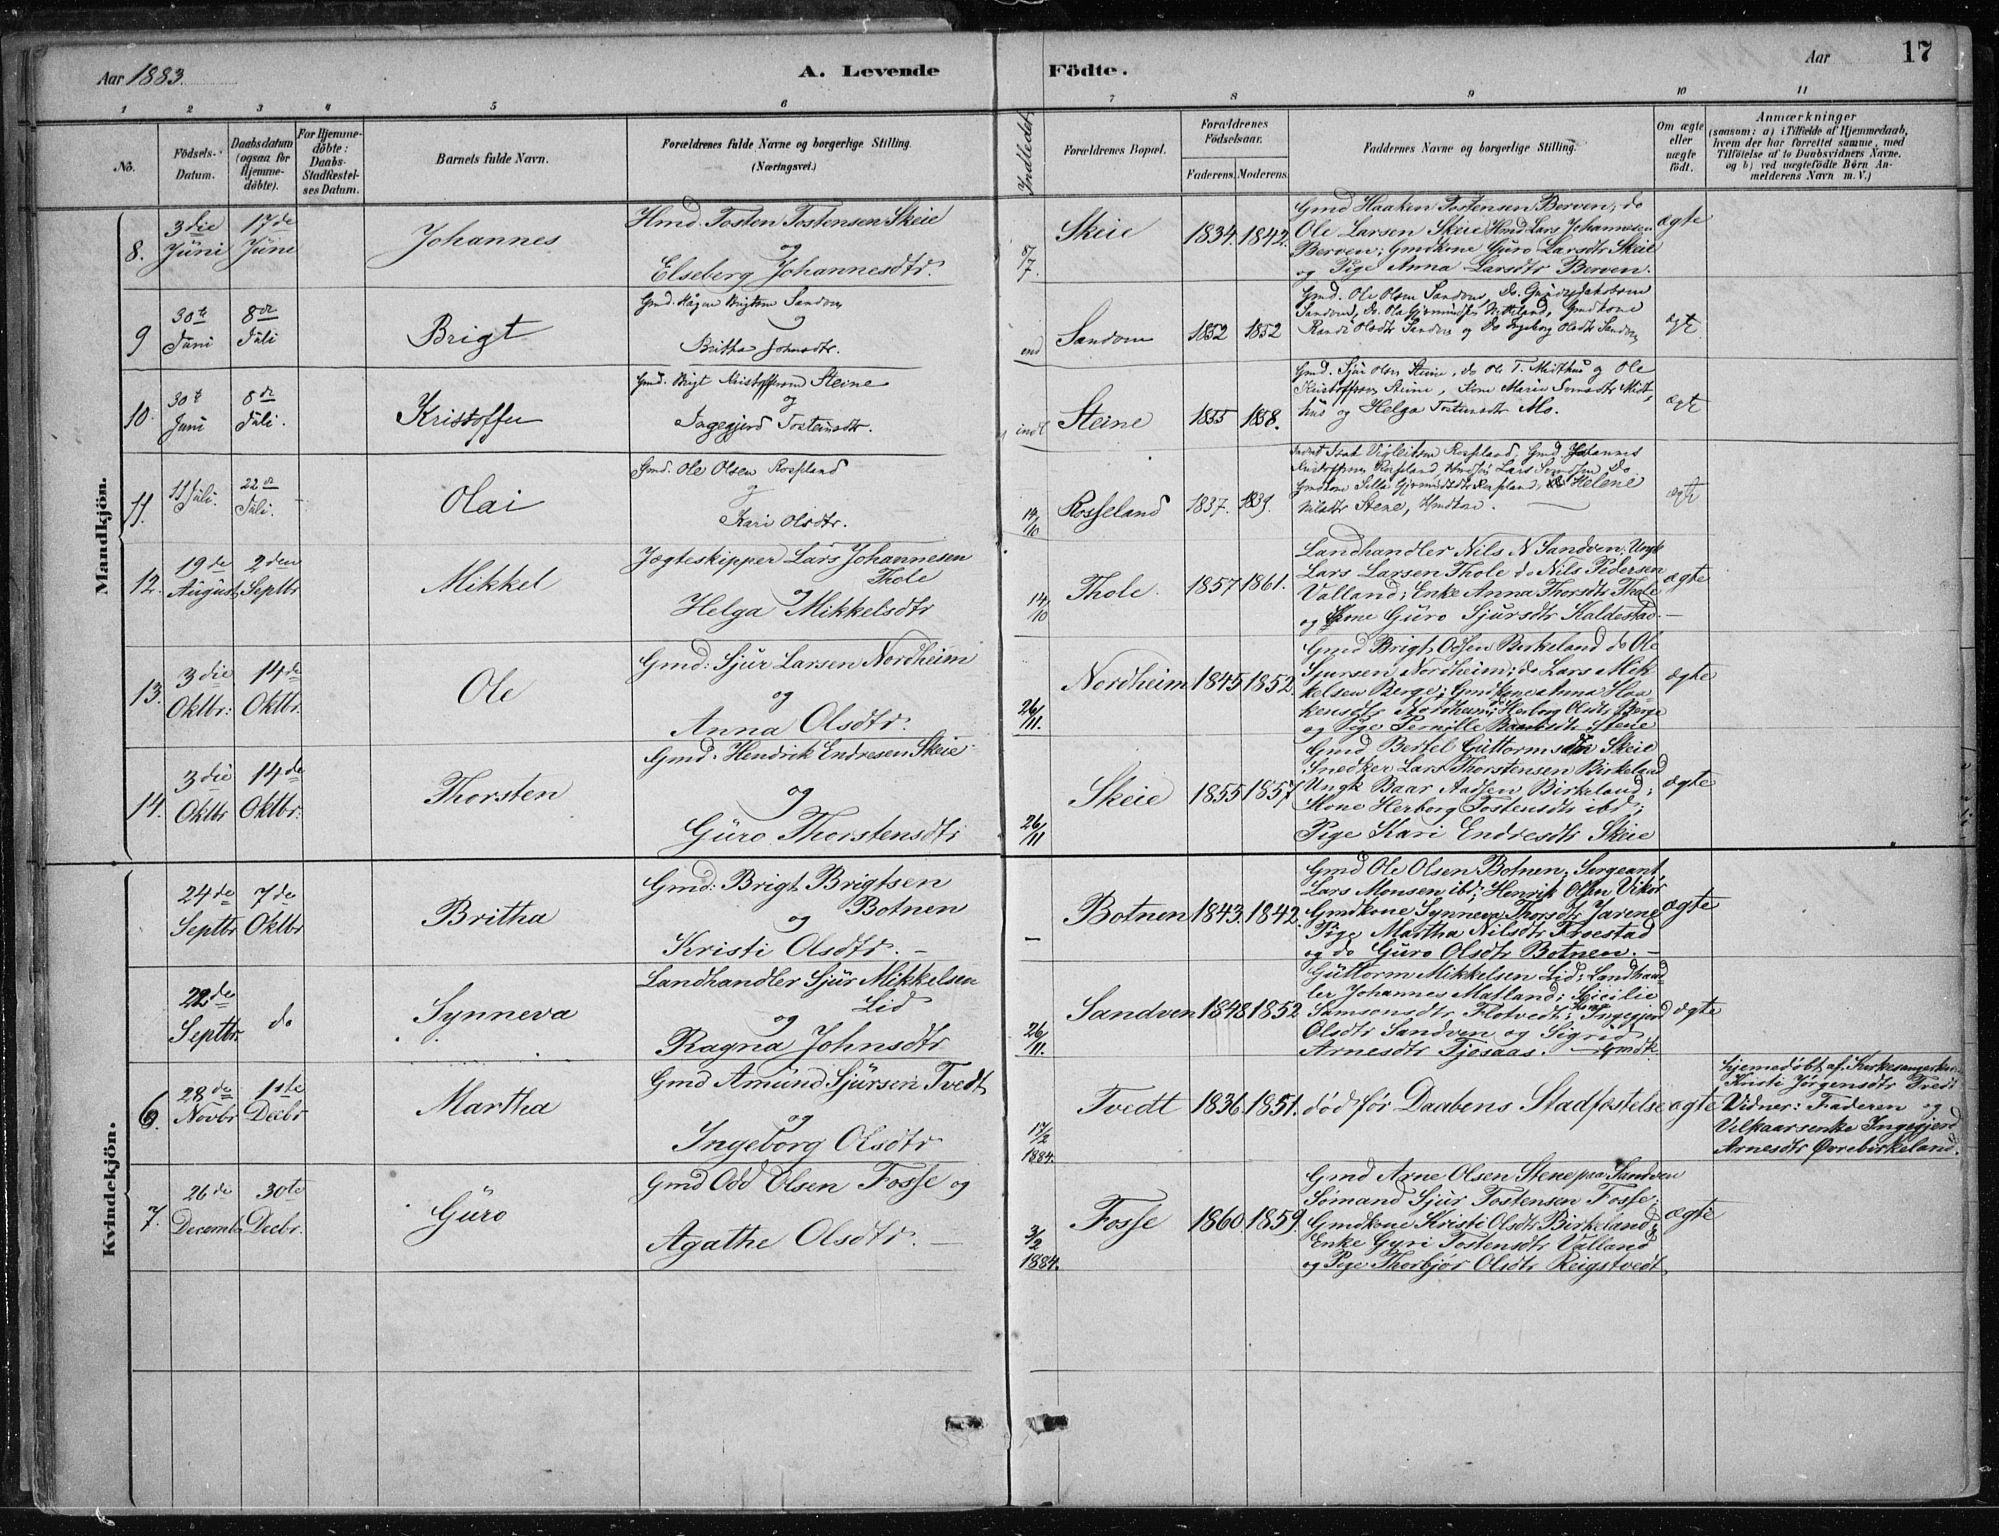 Aar 1883.
A. Levende Födte.
Aar
17
1 2 3 4 5 6 7 8 9 10 11
No.
Födsels-Datum.
Daabsdatum (ogsaa for Hjemmedöbte).
For Hjemmedöbte: Daabs-Stadfæstelses Datum.
Barnets fulde Navn.
Forældrenes fulde Navne og borgerlige Stilling.
(Næringsvei.)
Indledet
Forældrenes Bopæl.
Forældrenes Födselsaar.
Faderens. Moderens.
Faddernes Navne og borgerlige Stilling.
Om ægte eller uægte födt.
Anmærkninger
(saasom: a) i Tilfælde af Hjemmedaab, hvem der har forrettet samme, med Tilföielse af to Daabsvidners Navne, og b) ved uægtefödte Börn Anmelderens Navn m. V.)
Mandkjön.
8. 3die Juni 17de Juni Johannes
Gmd. Tosten Tostensen Skeie
og
Elseberg Johannesdtr.
8/7. Skeie 1834. 1842.
Gmd Haaken Tostensen Berven, do
Ole Larsen Skeie, Gmd Lars Johannesen
Berven; Gmdkone Guro Larsdtr Skeie
og Pige Anna Larsdtr Berven.
ægte
9 30te Juni 8de Juli Brigt
Gmd. Brigtsen Sandven
og
Britha Johnsdtr.
Sandven 1852 1852
Gmd. Ole Olsen Sandven, Do.
Gmdkone
Randi Olsdtr Sandven og Do Ingeborg Olsdtr Sandven
ægte
10. 30te Juni 8de Juli. Kristoffer
Gmd. Brigt Kristoffersen Steine
og
Ingegjerd Tostensdtr.
indl Steine 1855 1858.
Gmd. Sjur Olsen Steine, do Ole T. Midthus og Ole
Kristoffersen Steine, Kone Marie Midt-
hus og Helga Tostensdtr Mo.
ægte
11. 11 Juli. 22de Juli. Olai
Gmd. Ole Olsen Rosseland
og
Kari Olsdtr.
14/10 Rosseland 1837. 1839.
Rosseland, Gmd Johannes
Kristoffersen Rosseland, Lars Do
Gmdkone Rosseland, Helene
Nilsdtr Stene,
ægte
12. 19de August 2den Septbr Mikkel
Jægteskipper Lars Johannesen
Thole
og
Helga Mikkelsdtr
14/10 Thole. 1857 1861.
Landhandler Nils N Sandven; Ungk
Lars Larsen Thole do Nils Pedersen
Valland; Enke Anna Thorsdtr Thole
og Kone Guro Sjursdtr Kaldestad.
ægte
13. 3die Oktbr: 14de Oktbr. Ole
Gmd: Sjur Larsen Nordheim
og
Anna Olsdtr.
26/11. Nordheim 1845 1852.
Gmd Brigt Olsen Birkeland do Ole
Sjursen Nordheim; do Lars Mik-
kelsen Berge; Gmdkone Anna Haa-
kensdtr Nordheim; Herborg Olsdtr Berge
og Pige Pernille Baardsdtr Stene
ægte
14. 3die Oktbr 14de Oktbr: Thorsten
Gmd. Hendrik Endresen Skeie
og
Guro Thorstensdtr
26/11 Skeie 1855 1857
Gmd Bertel Guttormsen Skeie
Snedker Lars Thorstensen Birkeland
Ungk Baar Aadsen Birkeland;
Kone Herborg Tostensdtr ibd;
Pige Kari Endresdtr Skeie
ægte
Kvindekjön.
24de Septbr 7de Oktbr Britha
Gmd: Brigt Brigtsen
Botnen
og
Kristi Olsdtr. —
— Botnen 1843. 1842.
Gmd Ole Olsen Botnen, Sergeant,
Lars Monsen ibd; Henrik Olsen Vikør
Gmdkone Synneva Thorsdtr Jarene
Pige Martha Nilsdtr Froestad
og do Guro Olsdtr Botnen. —
ægte
22de Septbr. do Synneva
Landhandler Sjur Mikkelsen
Lid
og
Ragna Johnsdtr
26/11. Sandven 1848 1852
Guttorm Mikkelsen Lid; Landhand-
ler Johannes Matland; Sicilie
Samsonsdtr Flotvedt; Kone Ingegjerd
Olsdtr Sandven og Sigrid
Arnesdtr Tjesaas. — Gmdk.
ægte
6. 28de Novbr 11te Decbr Martha
Gmd Amund Sjursen Tvedt
og
Ingeborg Olsdtr
17/2 1884. Tvedt 1836. 1851. død før Daabens Stadfæstelse ægte
Hjemedøbt af Kirkesanger
Kristi Jørgensdtr Tvedt
Vidner: Faderen og
Vilkaarsenke Ingegjerd
Arnesdtr Øvrebirkeland.
7. 26de December 30te Decbr. Guro
Gmd Odd Olsen Fosse og
Agathe Olsdtr. —
3/2 1884. Fosse 1860. 1859.
Gmd Arne Olsen Stene paa Sandven
Sømand Sjur Tostensen Fosse;
Gmdkone Kristi Olsdtr Birkeland;
Enke Gyri Tostensdtr Valland
og Pige Thorbjør Olsdtr Reigstvedt
ægte